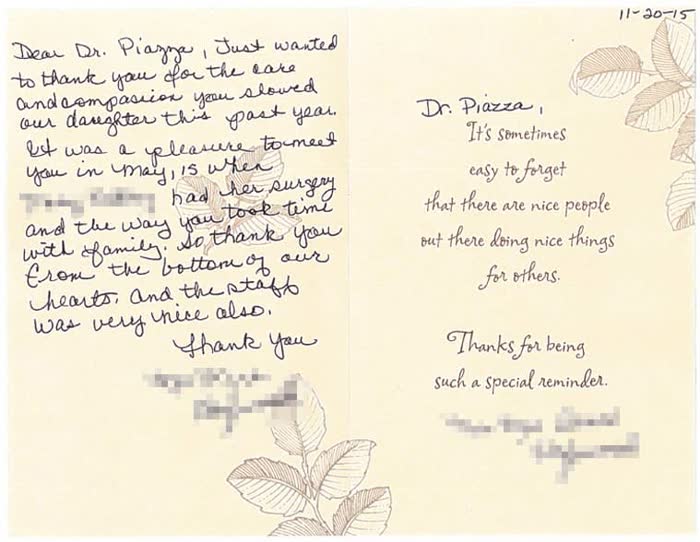 Dear Dr. Piazza, Just wanted
to thank you for the care
and compassion you showed
our daughter this past year.
It was a pleasure to meet
you in May, 15 when
had her surgery
and the way you took time
with family. So thank you
from the bottom of our
hearts. and the staff
was very nice also.
Thank You
11-20-15
Dr. Piazza,
It's sometimes
easy to forget
that there are nice people
out there doing nice things
for others.
Thanks for being
such a special reminder.